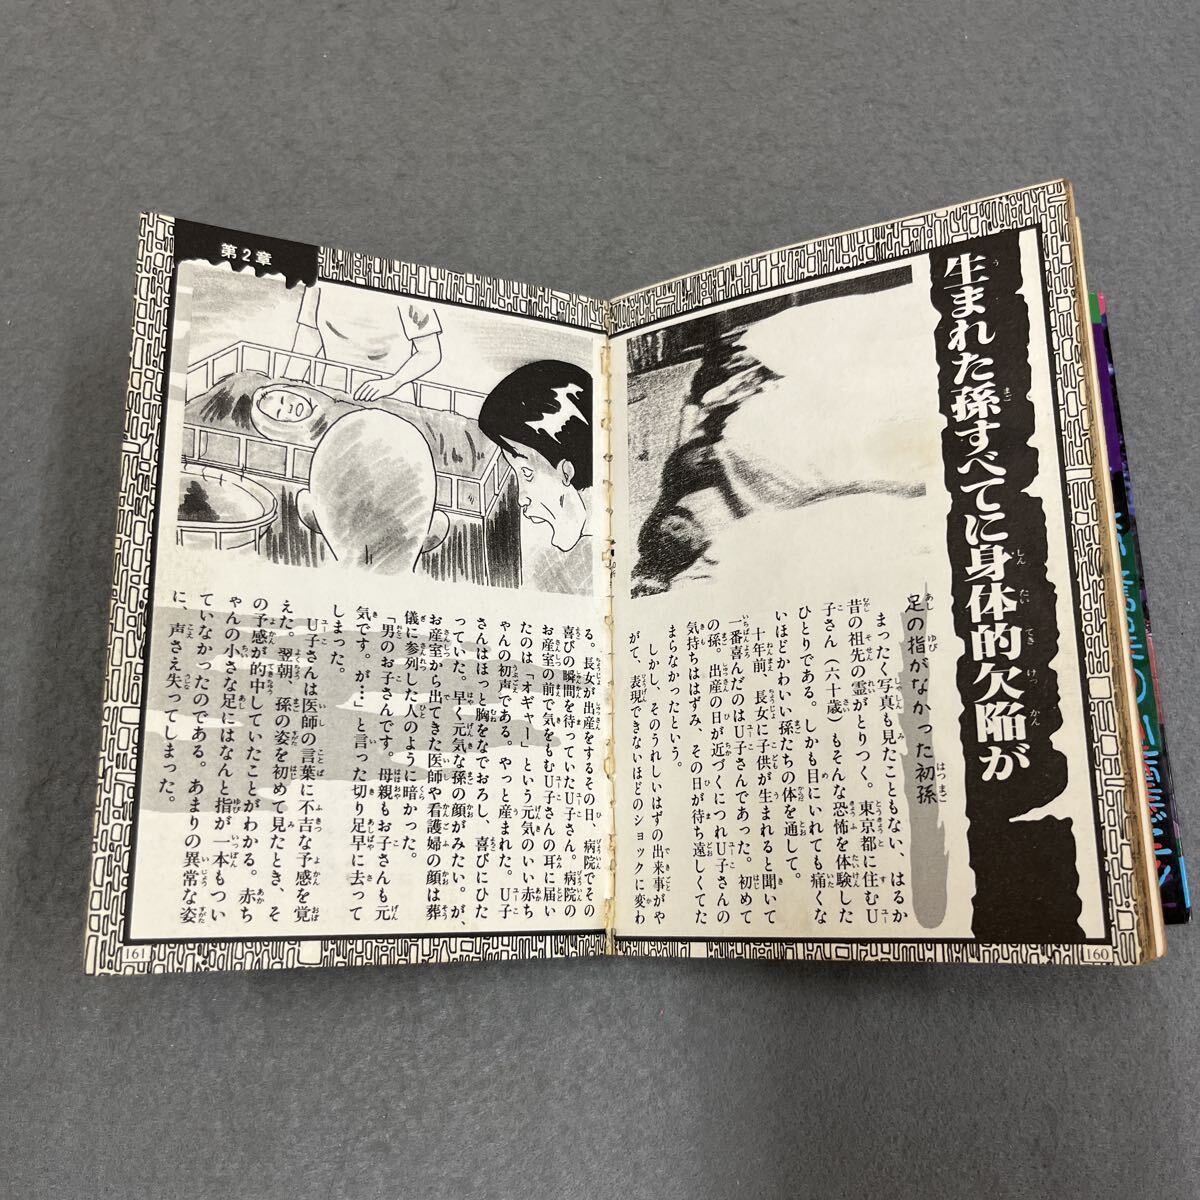 生まれた孫すべてに身体的欠陥が
足の指がなかった初孫
まったく写真も見たこともない、はるか
昔の祖先の霊がとりつく。東京都に住むU
子さん（六十歳）もそんな恐怖を体験した
ひとりである。しかも目にいれても痛くな
いほどかわいい孫たちの体を通して。
十年前、長女に子供が生まれると聞いて
一番喜んだのはU子さんであった。初めて
の孫。出産の日が近づくにつれU子さんの
気持ちははずみ、その日が待ち遠しくてた
まらなかったという。
しかし、そのうれしいはずの出来事がや
がて、表現できないほどのショックに変わ
160
第2章
る。長女が出産をするその日、病院でその
喜びの瞬間を待っていたU子さん。病院の
お産室の前で気をもむU子さんの耳に届い
たのは「オギャー」という元気のいい赤ち
ゃんの初声である。やっと産まれた。U子
さんはほっと胸をなでおろし、喜びにひた
っていた。早く元気な孫の顔がみたい。が、
お産室から出てきた医師や看護婦の顔は葬
儀に参列した人のように暗かった。
「男のお子さんです。母親もお子さんも元
気です。が…」と言った切り足早に去って
しまった。
U子さんは医師の言葉に不吉な予感を覚
えた。翌朝、孫の姿を初めて見たとき、そ
の予感が的中していたことがわかる。赤ち
ゃんの小さな足にはなんと指が一本もつい
ていなかったのである。あまりの異常な姿
に、声さえ失ってしまった。
161